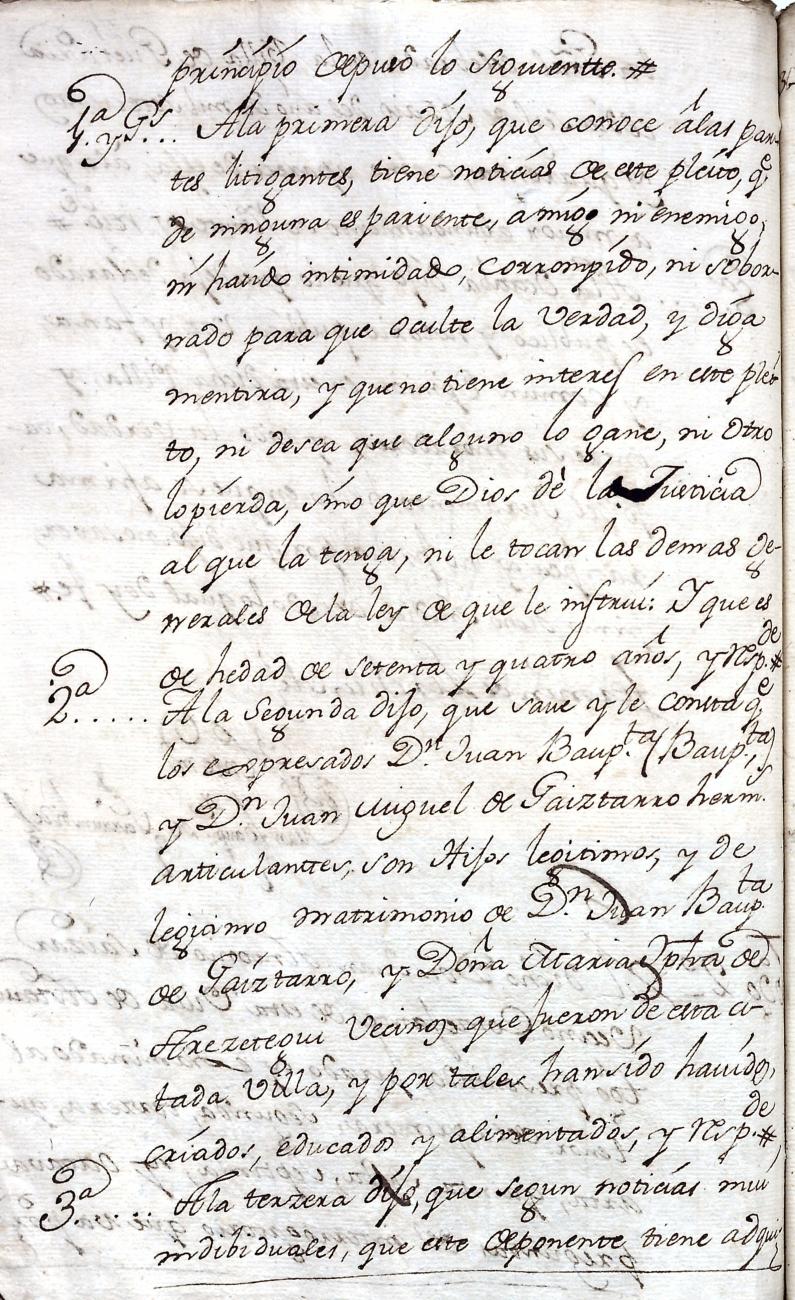 principio depuso lo siguientte. #
1.ª y G.s... A la primera dijo, que conoce â las par-
tes litigantes, tiene noticias de este pleito, q.e
de ninguna es pariente, amigo ni enemigo,
ni havido intimidado, corrompido, ni sobor-
nado para que oculte la verdad, y diga
mentira, y que no tiene interes en este plei-
to, ni desea que alguno lo gane, ni otro
lo pierda, sino que Dios dè la Justicia
al que la tenga, ni le tocan las demas ge-
nerales de la ley de que le instruí: Y que es
de hedad de setenta y quatro años, y resp.de #
2.ª..... A la segunda dijo, que save y le consta q.e
los expresados D.n Juan Baup.ta (Baup.ta)
y D.n Juan Miguel de Gaiztarro herm.s
articulanttes, son Hijos legitimos, y de
legitimo matrimonio de D.n Juan Baup.ta
de Gaiztarro, y Doña Maria Jpha de
Arezetegui Vecinos que fueron de esta ci-
tada Villa, y por tales han sido havidos,
criados, educados y alimentados, y resp.de #
3.ª..... A la terzera dijo, que segun noticias mui
indibiduales, que este deponente tiene adqui-